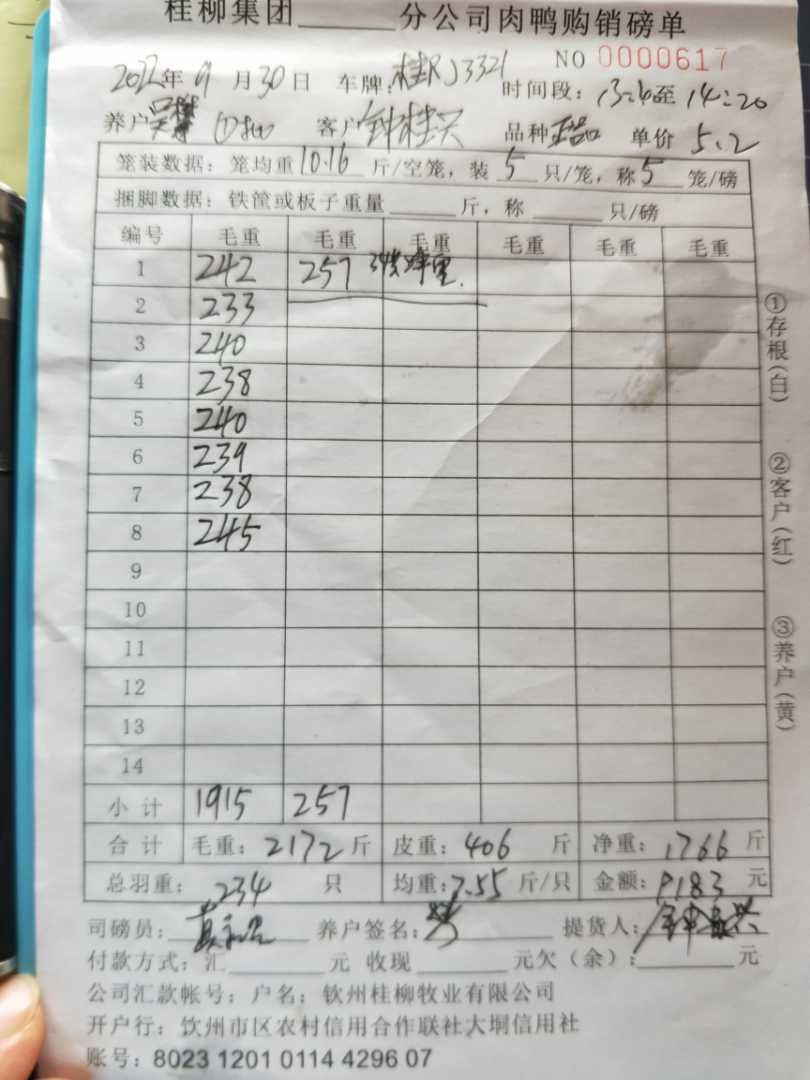 桂柳集团______分公司肉鸭购销磅单
NO 0000617
2022年9月30日 车牌:桂RJ3321 时间段:13:40至14:20
养户 客户 钟桂兴 品种 正品 单价 5.2
笼装数据:笼均重10.16斤/空笼,装5只/笼,称5笼/磅
捆脚数据:铁筐或板子重量______斤,称______只/磅
编号 毛重 毛重 毛重 毛重 毛重 毛重
1 242 257
2 233
3 240
4 238
5 240
6 239
7 238
8 245
9
10
11
12
13
14
小计 1915 257
合计 毛重:2172斤 皮重:406斤 净重:1766斤
总羽重:234只 均重:7.55斤/只 金额:9183元
司磅员: 养户签名: 提货人:
付款方式:汇______元 收现______元欠(余):______元
公司汇款帐号:户名:钦州桂柳牧业有限公司
开户行:钦州市区农村信用合作联社大垌信用社
账号:8023 1201 0114 4296 07
①存根(白)
②客户(红)
③养户(黄)